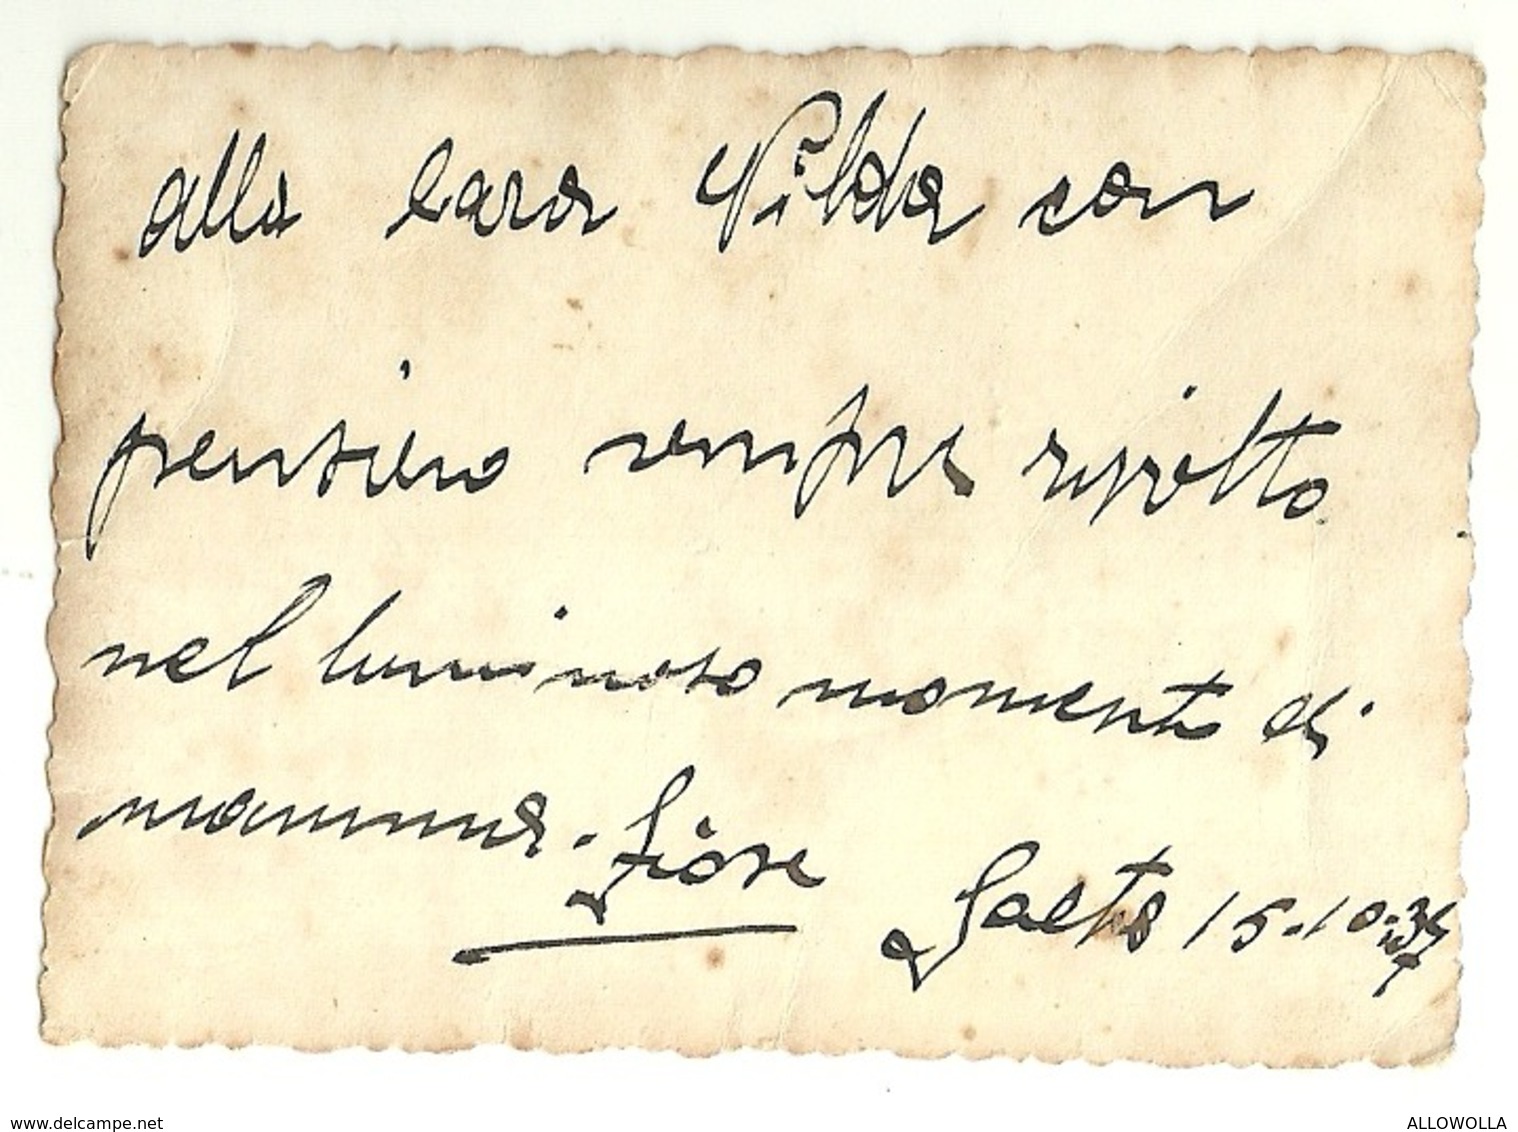 alla cara Nilda con
pensiero sempre rivolto
nel luminoso momento di
mamma. Fiore
Gaeta 15.10.37
www.delcampe.net
ALLOWOLLA